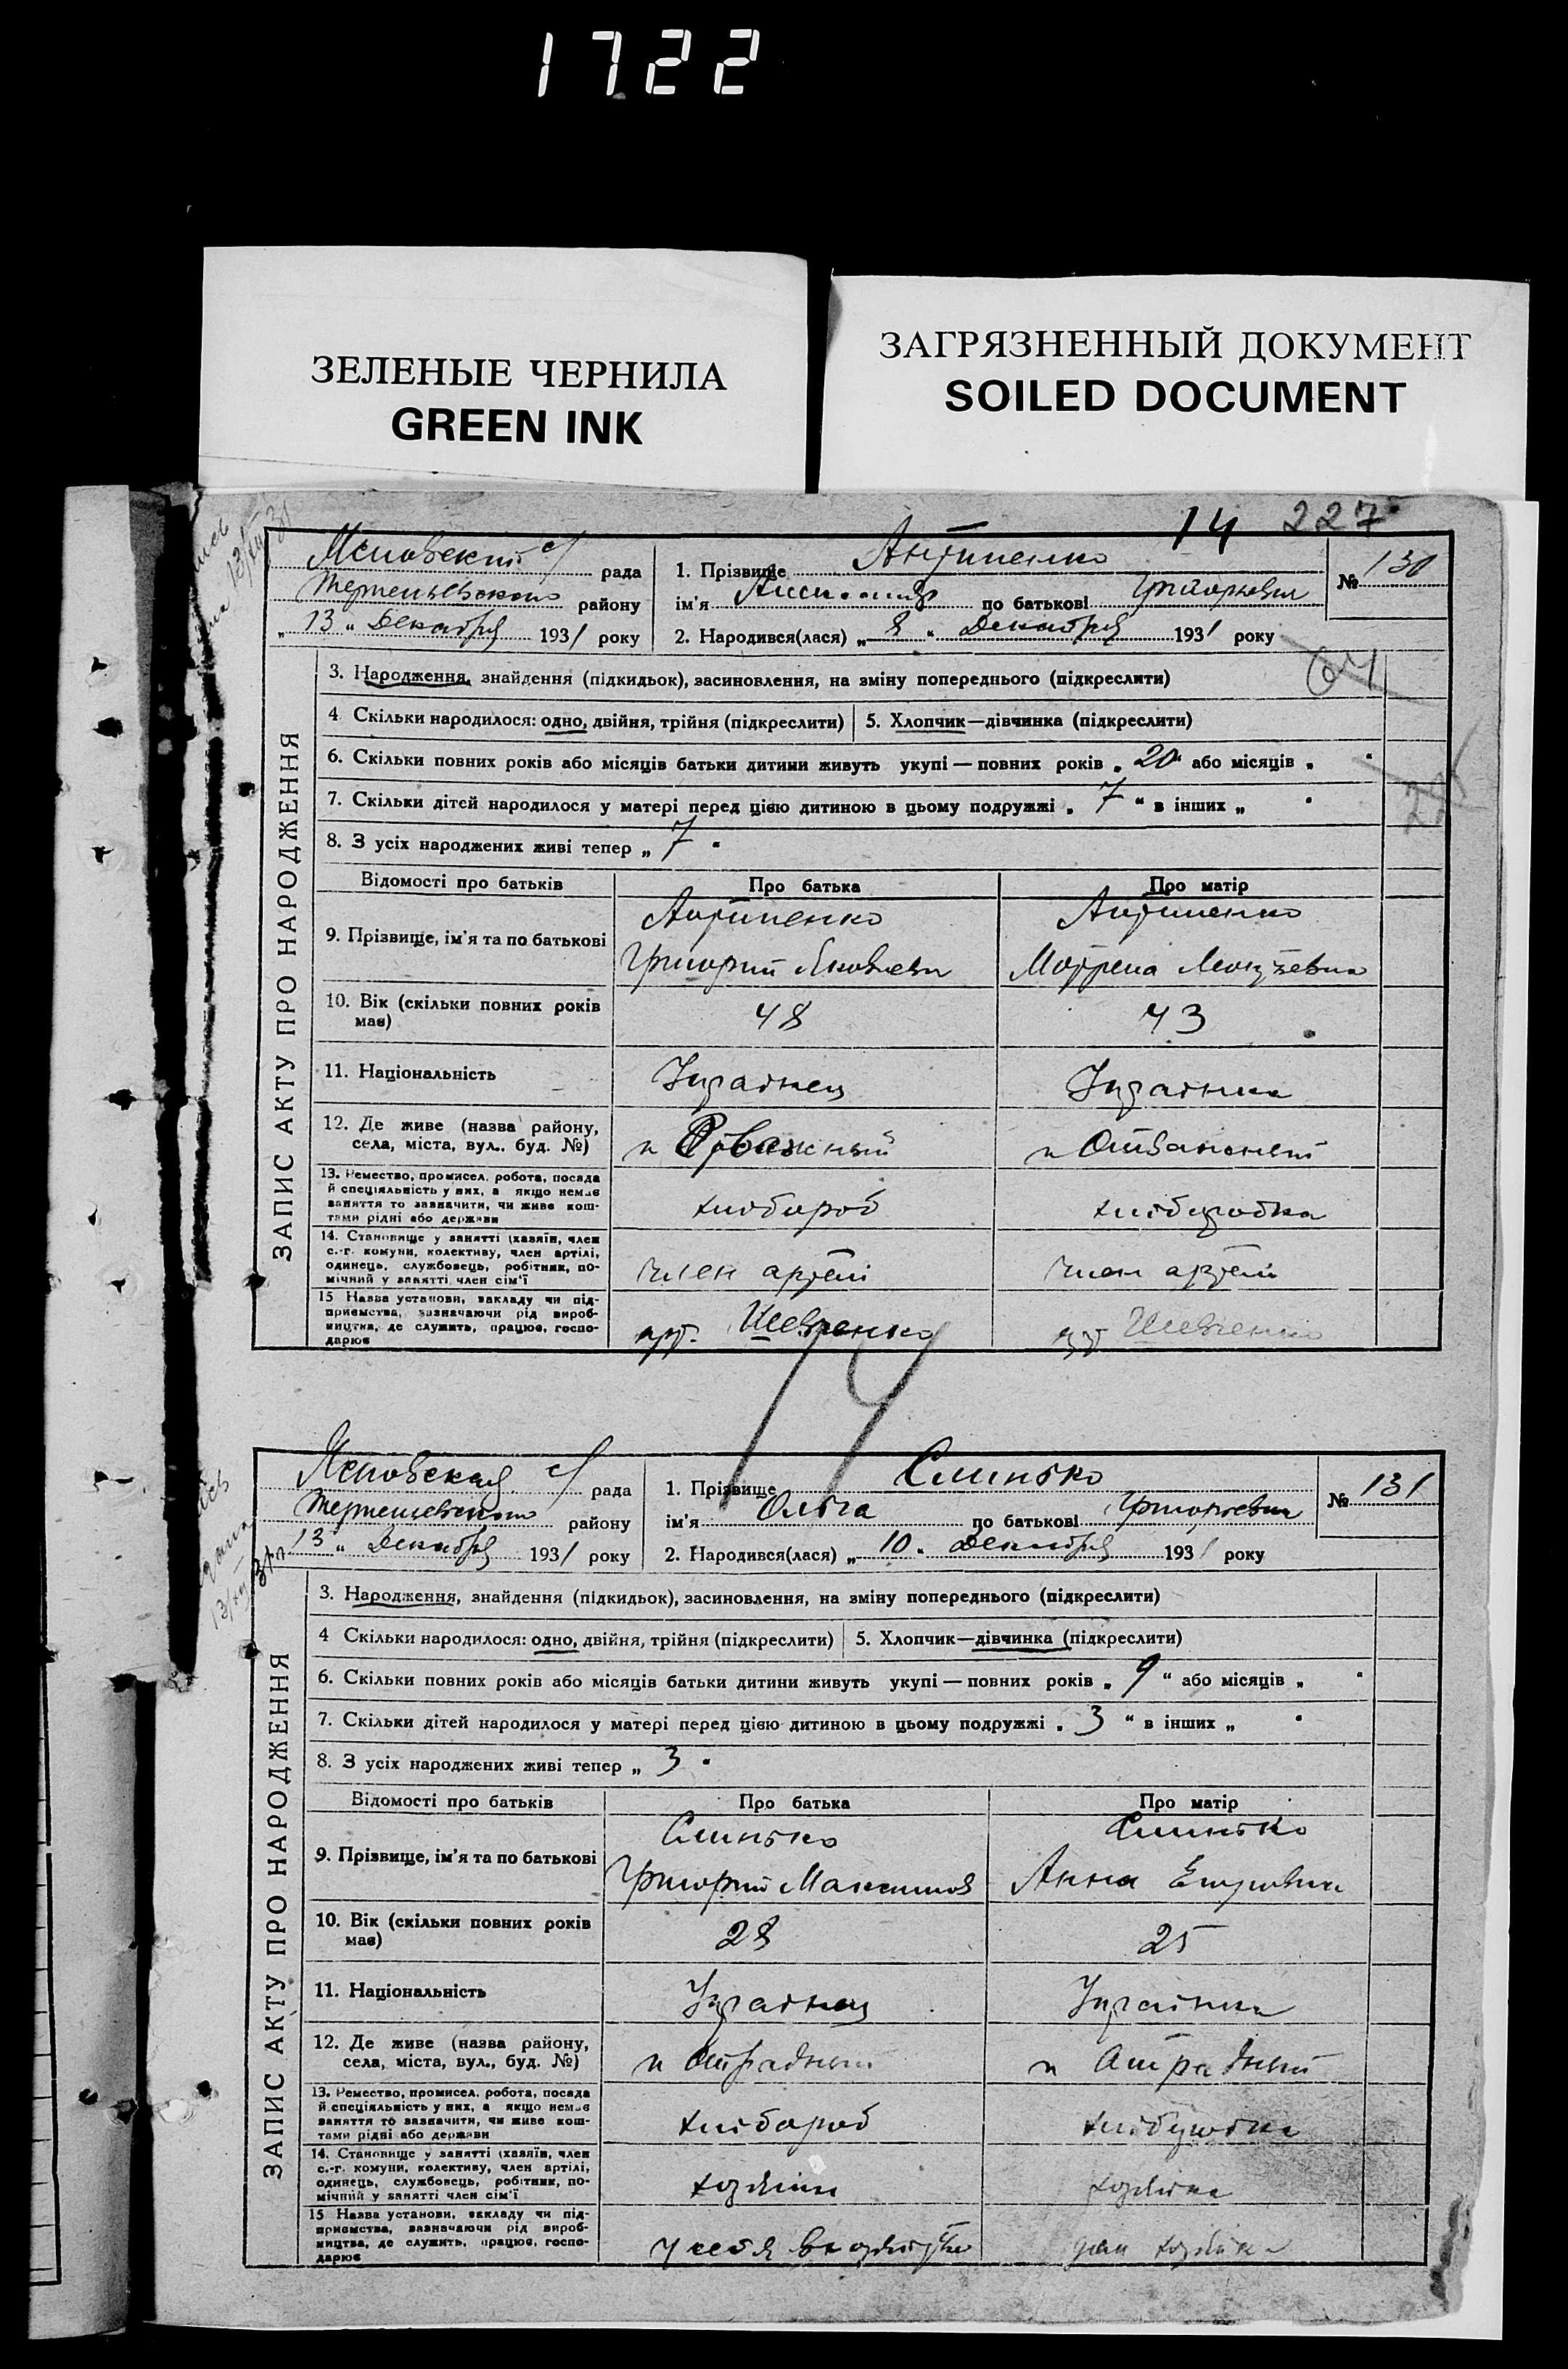 1722
ЗЕЛЕНЫЕ ЧЕРНИЛА
GREEN INK
ЗАГРЯЗНЕННЫЙ ДОКУМЕНТ
SOILED DOCUMENT
14 227
ЗАПИС АКТУ ПРО НАРОДЖЕННЯ
рада
району
„ 13 " Декабря 1931 року
1. Прізвище Антипенко
ім'я по батькові Григорьевич
№ 130
2. Народився(лася) „ 8 " Декабря 1931 року
3. Народження, знайдення (підкидьок), засиновлення, на зміну попереднього (підкреслити)
4 Скільки народилося: одно, двійня, трійня (підкреслити) 5. Хлопчик—дівчинка (підкреслити)
6. Скільки повних років або місяців батьки дитини живуть укупі — повних років „ 20 " або місяців „ "
7. Скільки дітей народилося у матері перед цією дитиною в цьому подружжі „ 7 " в інших „ "
8. З усіх народжених живі тепер „ 7 "
Відомості про батьків Про батька Про матір
9. Прізвище, ім'я та по батькові
Антипенко Антипенко
Григорий Яковлевич Мотрена
10. Вік (скільки повних років має) 48 43
11. Національність Украінец Украінка
12. Де живе (назва району, села, міста, вул., буд. №) п Отважный п Отважный
13. Ремество, промисел, робота, посада й спеціяльність у них, а якщо немає заняття то зазначити, чи живе коштами рідні або держави хлібороб хліборобка
14. Становище у занятті (хазяїн, член с.-г. комуни, колективу, член артілі, одинець, службовець, робітник, помічний у занятті член сім'ї член артелі член артелі
15 Назва установи, закладу чи підприємства, зазначаючи рід виробництва, де служить, працює, господарює арт. Шевченко арт Шевченко
14
ЗАПИС АКТУ ПРО НАРОДЖЕННЯ
рада
району
13 " Декабря 1931 року
1. Прізвище Слинько
ім'я Ольга по батькові Григорьевна
№ 131
2. Народився(лася) „ 10 " Декабря 1931 року
3. Народження, знайдення (підкидьок), засиновлення, на зміну попереднього (підкреслити)
4 Скільки народилося: одно, двійня, трійня (підкреслити) 5. Хлопчик—дівчинка (підкреслити)
6. Скільки повних років або місяців батьки дитини живуть укупі — повних років „ 9 " або місяців „ "
7. Скільки дітей народилося у матері перед цією дитиною в цьому подружжі „ 3 " в інших „ "
8. З усіх народжених живі тепер „ 3 "
Відомості про батьків Про батька Про матір
9. Прізвище, ім'я та по батькові
Слинько Слинько
Григорий Максимов Анна
10. Вік (скільки повних років має) 28 25
11. Національність Украінец Украінка
12. Де живе (назва району, села, міста, вул., буд. №) п Отрадный п Отрадный
13. Ремество, промисел, робота, посада й спеціяльність у них, а якщо немає заняття то зазначити, чи живе коштами рідні або держави хлібороб хліборобка
14. Становище у занятті (хазяїн, член с.-г. комуни, колективу, член артілі, одинець, службовець, робітник, помічний у занятті член сім'ї хозяін хозяіка
15 Назва установи, закладу чи підприємства, зазначаючи рід виробництва, де служить, працює, господарює у себя